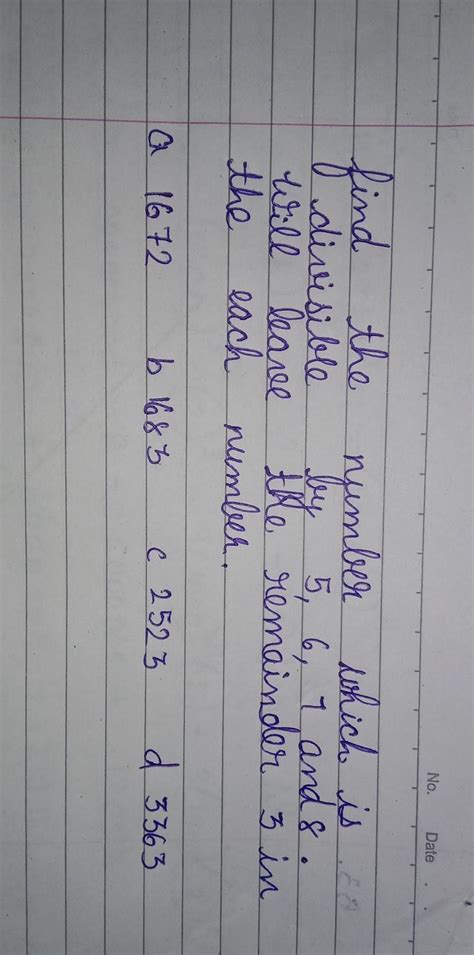 No. Date
find the number which is
divisible by 5, 6, 7 and 8.
will leave the remainder 3 in
the each number.
a 1672 b 1683 c 2523 d 3363